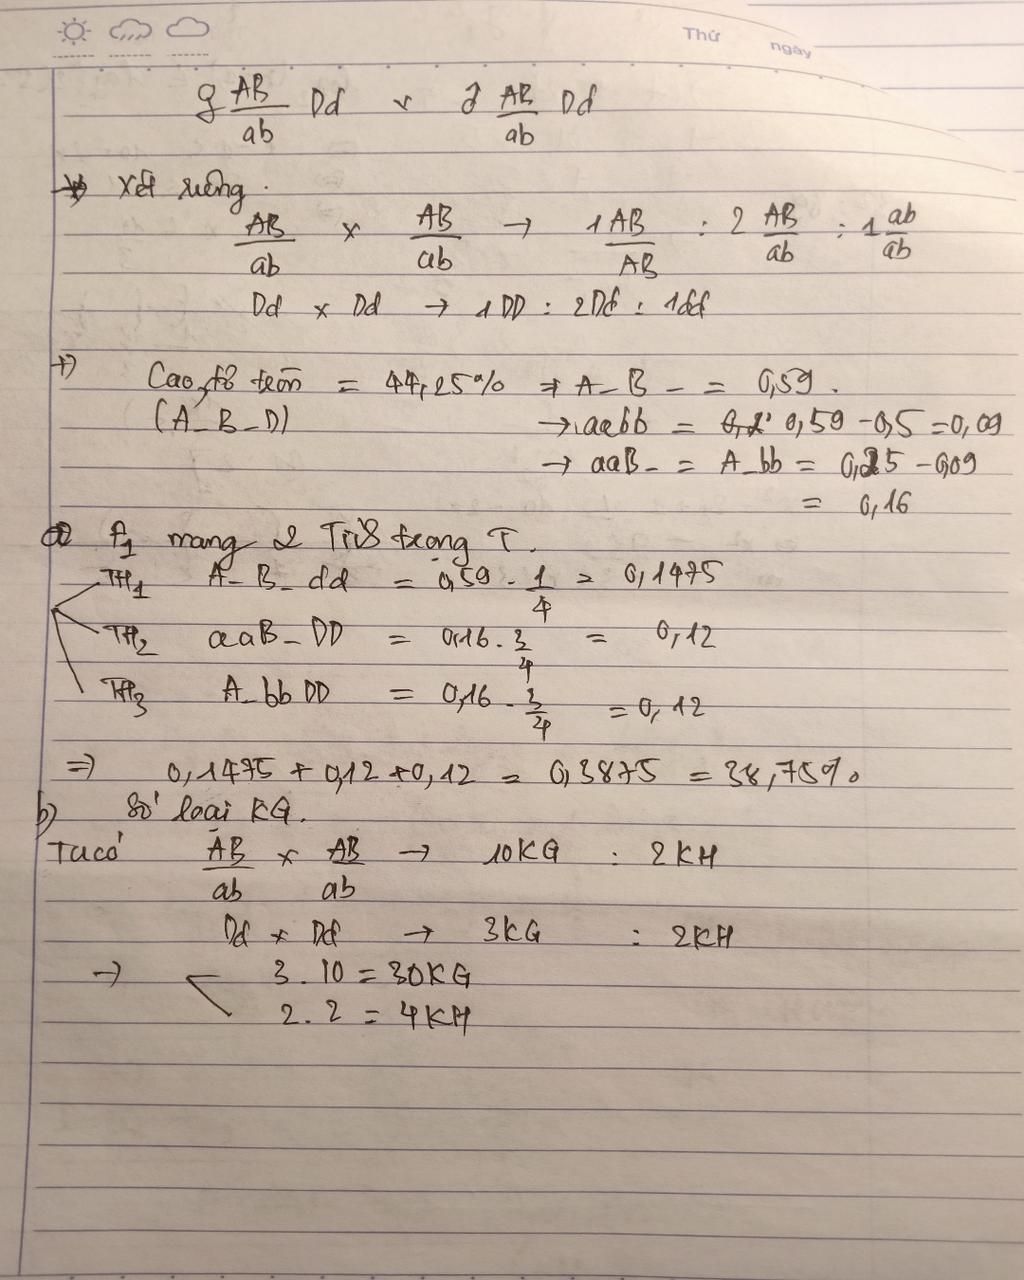 Thứ ngày
♀ AB/ab Dd x ♂ AB/ab Dd
* Xét riêng.
AB/ab x AB/ab → 1 AB/AB : 2 AB/ab : 1 ab/ab
Dd x Dd → 1DD : 2Dd : 1dd
+) Cao, đỏ, tròn = 44,25% ⇒ A_B_ = 0,59.
(A_B_D) → aabb = 0,59 - 0,5 = 0,09
→ aaB_ = A_bb = 0,25 - 0,09
= 0,16
a) F1 mang 2 trong T.
TH1 A_B_dd = 0,59 . 1/4 = 0,1475
TH2 aaB_DD = 0,16 . 3/4 = 0,12
TH3 A_bbDD = 0,16 . 3/4 = 0,12
⇒ 0,1475 + 0,12 + 0,12 = 0,3875 = 38,75%
b) Số loại KG.
Ta có AB/ab x AB/ab → 10KG : 2KH
Dd x Dd → 3KG : 2KH
→ 3.10 = 30KG
2.2 = 4KH